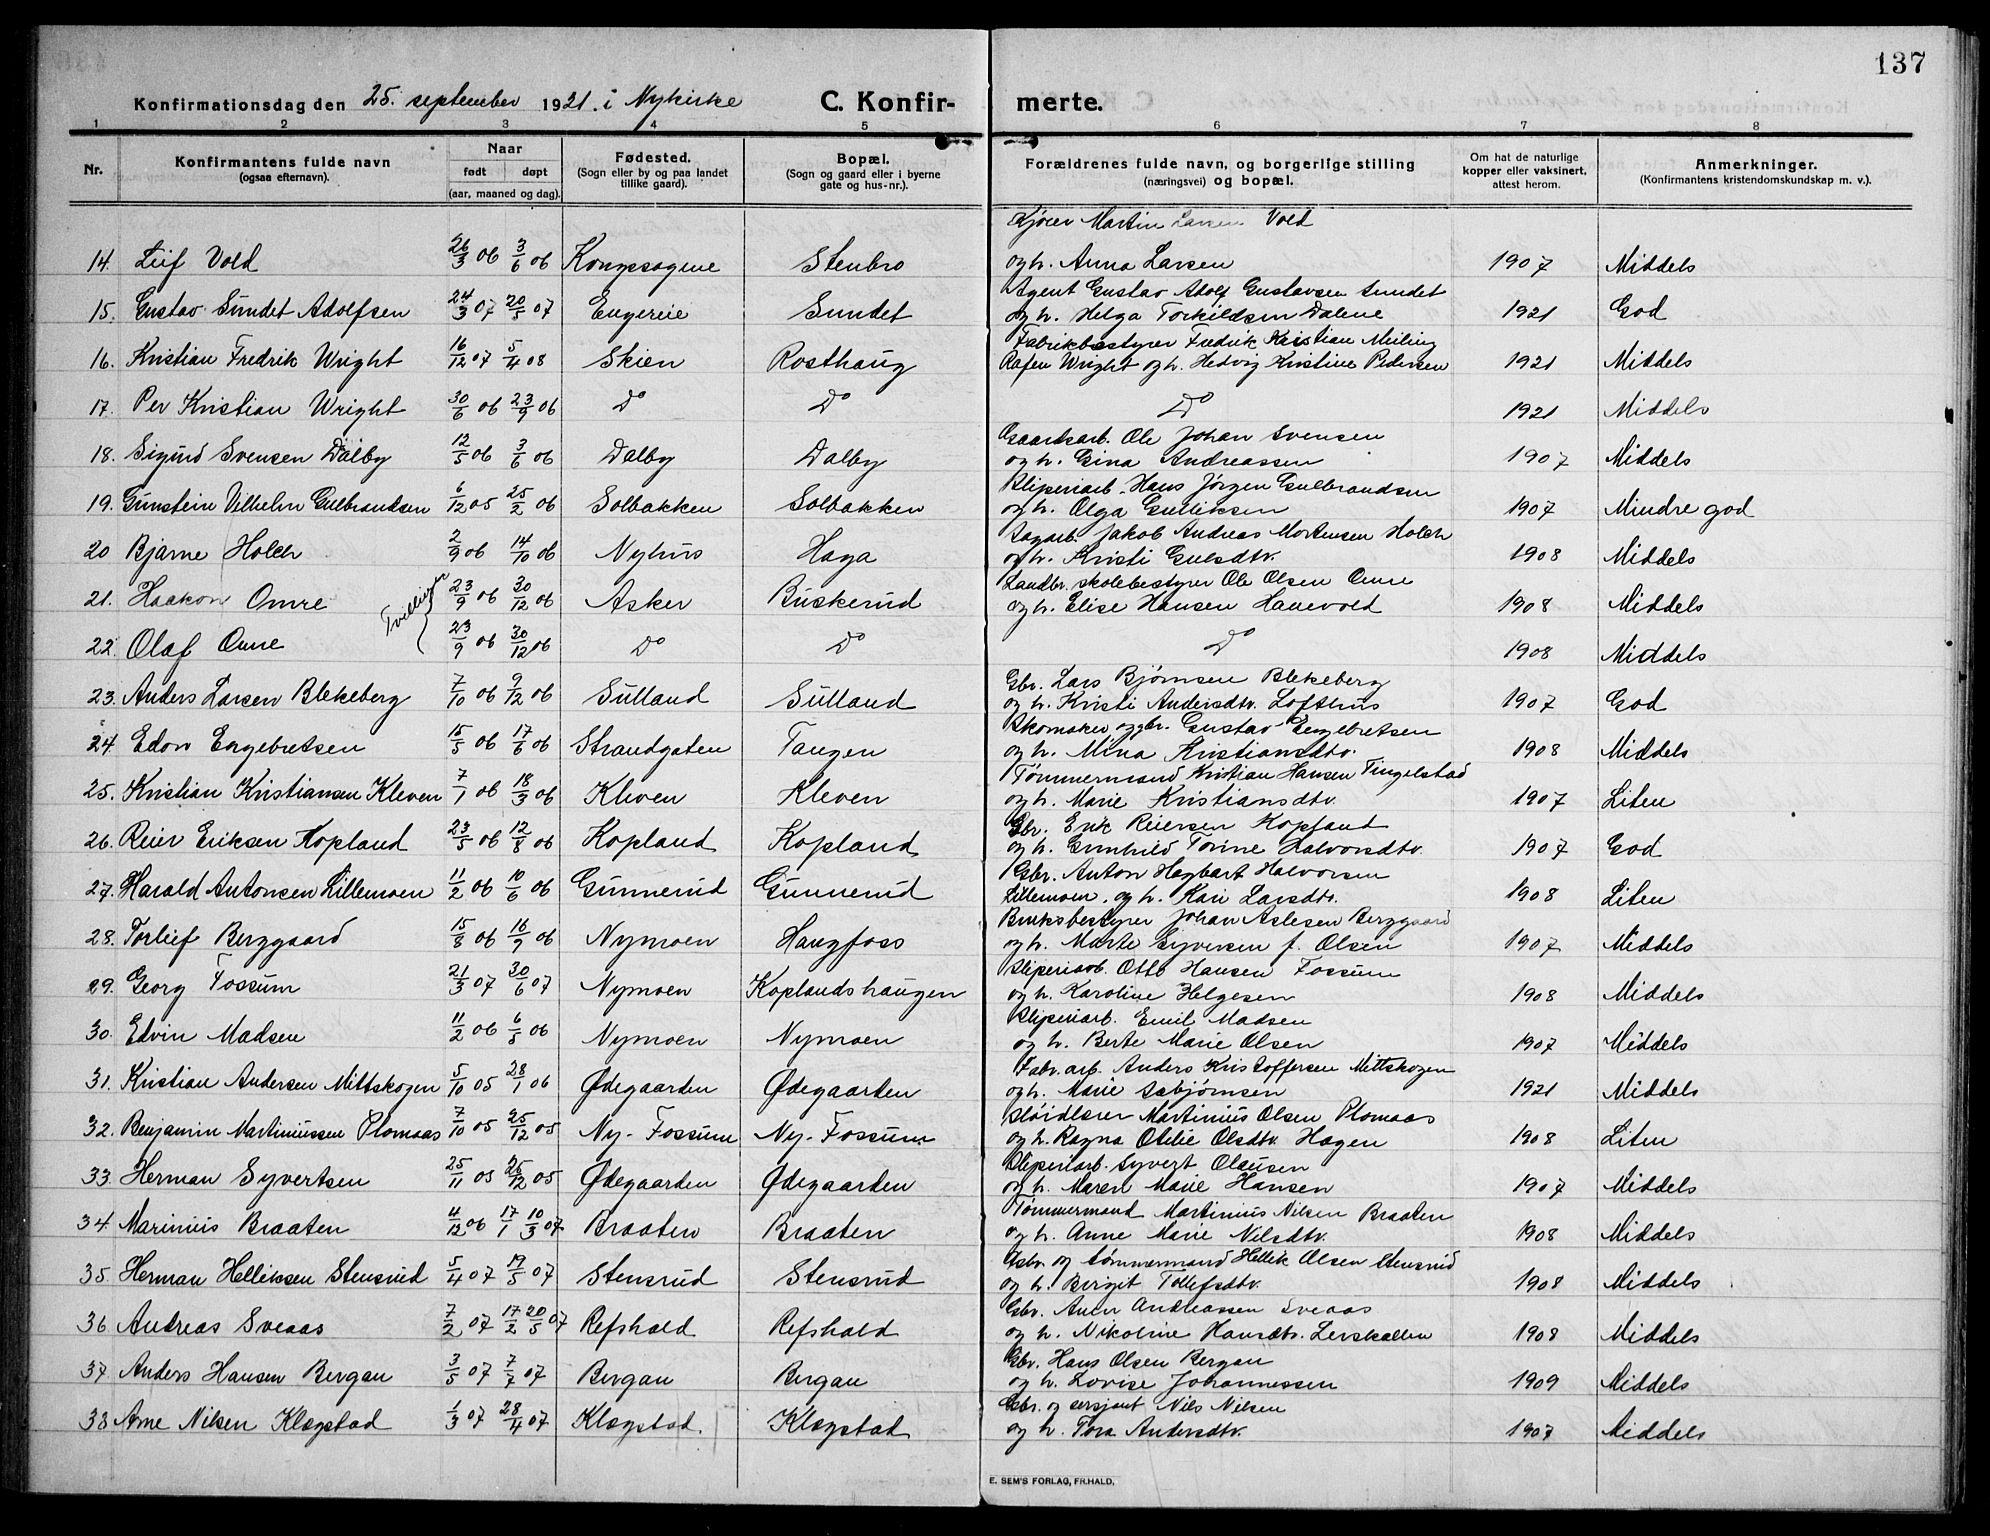 137
Konfirmationsdag den 25. september 1921. i Nykirke C. Konfir- merte.
1 2 3 4 5 6 7 8
Nr. Konfirmantens fulde navn (ogsaa efternavn). Naar født døpt (aar, maaned og dag). Fødested. (Sogn eller by og paa landet tillike gaard). Bopæl. (Sogn og gaard eller i byerne gate og hus-nr.). Forældrenes fulde navn, og borgerlige stilling (næringsvei) og bopæl. Om hat de naturlige kopper eller vaksinert, attest herom. Anmerkninger. (Konfirmantens kristendomskundskap m. v.).
Kjører Martin Larsen Vold
14. Leif Vold 26/3 06 3/6 06 Kongssogene Stenbro og h. Anna Larsen 1907 Middels
Agent Gustav Adolf Gustavsen Sundet
15. Gustav Sundet Adolfsen 24/3 07 20/5 07 Engereie Sundet og h. Helga Torkildsen Dalene 1921 God
Fabrikbestyrer Fredrik Kristian Meiling
16. Kristian Fredrik Wright 16/12 07 5/4 08 Skien Rosthaug Rafen Wright og h. Hedvig Kristine Pedersen 1921 Middels
17. Per Kristian Wright 30/6 06 23/9 06 Do Do Do 1921 Middels
Gaardsarb. Ole Johan Svensen
18. Sigurd Svensen Dalby 12/5 06 3/6 06 Dalby Dalby og h. Gina Andreassen 1907 Middels
Sliperiarb. Hans Jørgen Gulbrandsen
19. Gunstein Vilhelm Gulbrandsen 6/12 05 25/2 06 Solbakken Solbakken og h. Olga Gulliksen 1907 Mindre god
Sagarb. Jakob Andreas Mortensen Holch
20 Bjarne Holch 2/9 06 14/10 06 Nyhus Haga og h. Kristi Gulsdtr. 1908 Middels
Landbr. skolebestyrer Ole Olsen Omre
21. Haakon Omre Tvillinger 23/9 06 30/12 06 Asker Buskerud og h. Elise Hansen Hanevold 1908 Middels
22. Olaf Omre 23/9 06 30/12 06 Do Do Do 1908 Middels
Gbr. Lars Bjørnsen Blekeberg
23. Anders Larsen Blekeberg 7/10 06 9/12 06 Sulland Sulland og h. Kristi Andersdtr. Lofthus 1907 God
Skomaker og gbr. Gustav Engebretsen
24. Edon Engebretsen 15/5 06 17/6 06 Strandgaten Tangen og h. Mina Kristiansdtr. 1908 Middels
Tømmermand Kristian Hansen Tingelstad
25. Kristian Kristiansen Kleven 7/1 06 18/3 06 Kleven Kleven og h. Marie Kristiansdtr. 1907 Liten
Gbr. Erik Reiersen Kopland
26. Reier Eriksen Kopland 23/5 06 12/8 06 Kopland Kopland og h. Gunhild Torine Halvorsdtr. 1907 God
Gbr. Anton Hagbart Halvorsen
27. Harald Antonsen Lillemoen 11/2 06 10/6 06 Gunnerud Gunnerud Lillemoen, og h. Kari Larsdtr. 1908 Liten
Bruksbestyrer Johan Aslesen Berggaard
28. Torleif Berggaard 15/8 06 16/9 06 Nymoen Haugfoss og h. Marte Syversen f. Olsen 1907 Middels
Sliperiarb. Otto Hansen Fossum
29. Georg Fossum 21/3 07 30/6 07 Nymoen Koplandshaugen og h. Karoline Helgesen 1908 Middels
Sliperiarb. Emil Madsen
30. Edvin Madsen 11/2 06 6/5 06 Nymoen Nymoen og h. Berte Marie Olsen 1907 Middels
Fabr. arb. Anders Kristoffersen Mittskogen
31. Kristian Andersen Mittskogen 5/10 05 28/1 06 Ødegaarden Ødegaarden og h. Marie Esbjørnsen 1921 Middels
Sløidlærer Martinius Olsen Plomaas
32. Benjamin Martiniussen Plomaas 7/10 05 25/12 05 Ny-Fossum Ny-Fossum og h. Ragna Otelie Olsdtr. Hagen 1908 Liten
Sliperiarb. Syvert Olausen
33. Herman Syvertsen 25/11 05 26/12 05 Ødegaarden Ødegaarden og h. Maren Marie Hansen 1907 Middels
Tømmermand Martinius Nilsen Braaten
34. Marinius Braaten 4/12 06 17/1 10/3 07 Braaten Braaten og h. Anne Marie Nilsdtr. 1908 Middels
Gbr. og tømmermand Hellik Olsen Stensrud
35. Herman Helliksen Stensrud 5/4 07 19/5 07 Stensrud Stensrud og h. Birgit Tollefsdtr. 1908 Middels
Gbr. Anen Andreassen Sveaas
36. Andreas Sveaas 7/2 07 17/2 20/5 07 Refshald Refshald og h. Nikoline Hansdtr. Lerskallen 1908 Middels
Gbr. Hans Olsen Bergan
37. Anders Hansen Bergan 3/5 07 7/7 07 Bergan Bergan og h. Lovise Johannessen 1909 Middels
Gbr. og sersjant Nils Nilsen
38. Arne Nilsen Klægstad 1/3 07 28/4 07 Klægstad. Klægstad og h. Tora Andersdtr. 1907 Middels
E. SEM'S FORLAG, FR.HALD.